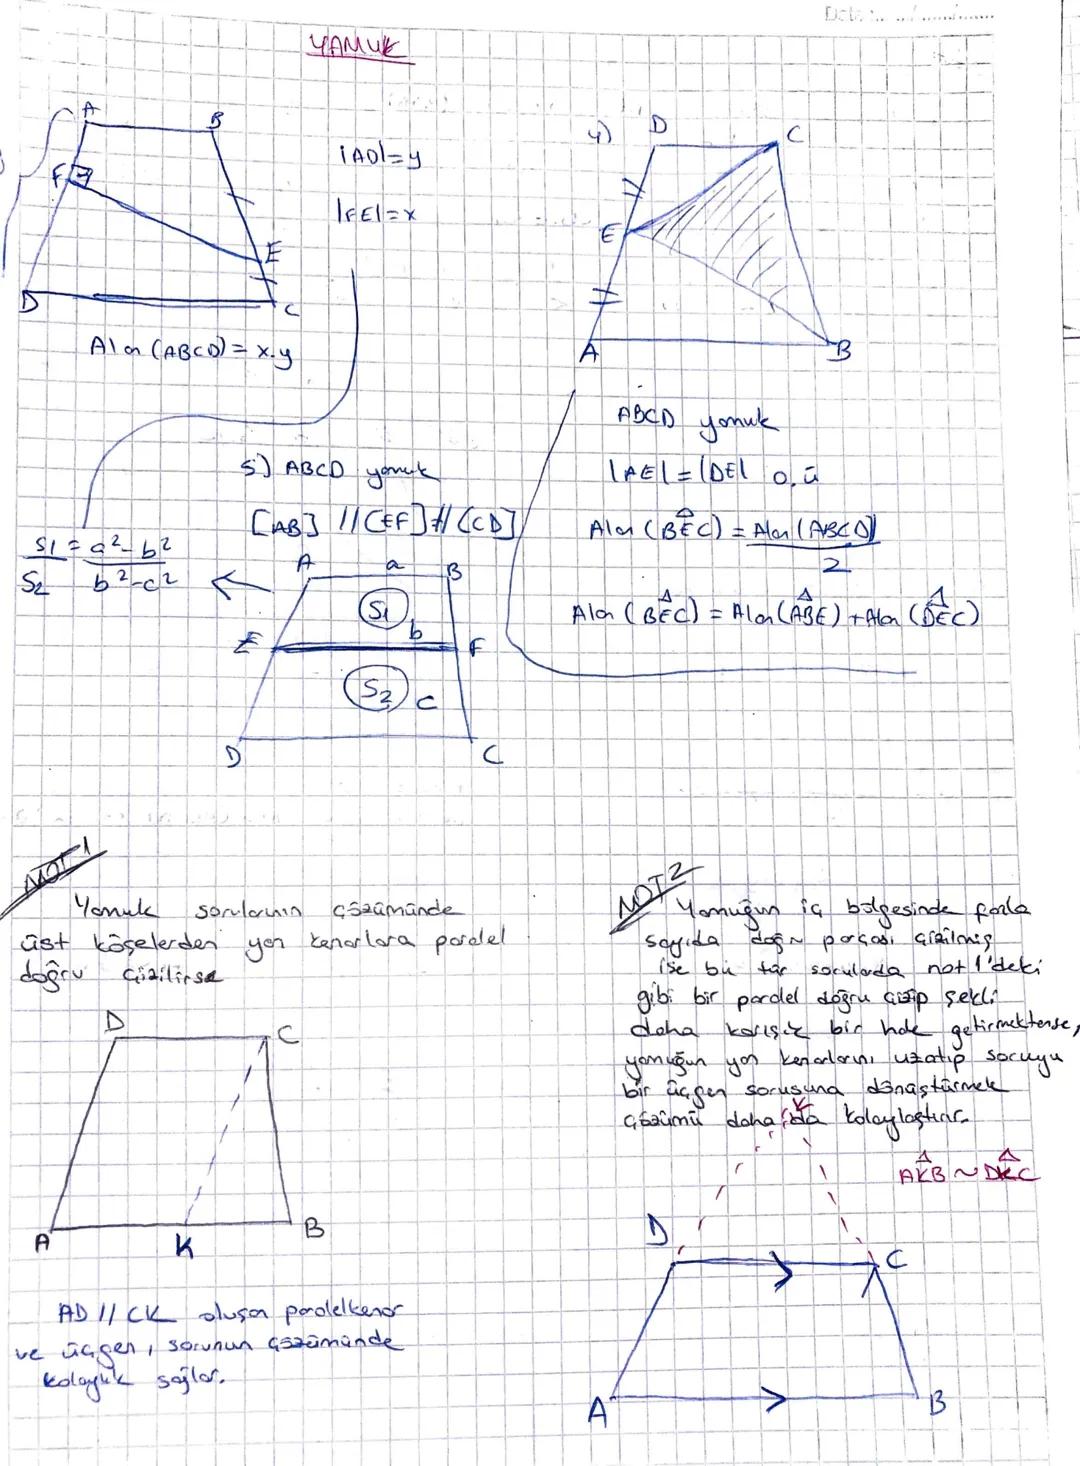 YAMUK
A
B
F
E
D
C
|AD|=y
|FE|=x
Alan (ABCD) = x.y
4)
D
C
E
A
B
ABCD yamuk
|AE|=|DE| o,ü
Alan (BEC) = Alan (ABCD)
2
Alan (BEC) = Alan (ABE) + Alan (DEC)
5) ABCD yamuk
[AB] // [EF] // [CD]
S1 = a²-b²
S2 b²-c²
A
a
B
S1
b
E
F
S2
c
D
C
NOT 1
Yamuk sorularının çözümünde
üst köşelerden yan kenarlara paralel
doğru çizilirse
D
C
A
K
B
AD // CK oluşan paralelkenar
ve üçgen, sorunun çözümünde
kolaylık sağlar.
NOT 2
Yamuğun iç bölgesinde fazla
sayıda doğru parçası çizilmiş
ise bu tür sorularda not 1'deki
gibi bir paralel doğru çizip şekli
daha karışık bir hale getirmektense,
yamuğun yan kenarlarını uzatıp soruyu
bir üçgen sorusuna dönüştürmek
çözümü daha da kolaylaştırır.
K
AKB ~ DKC
D
C
A
B